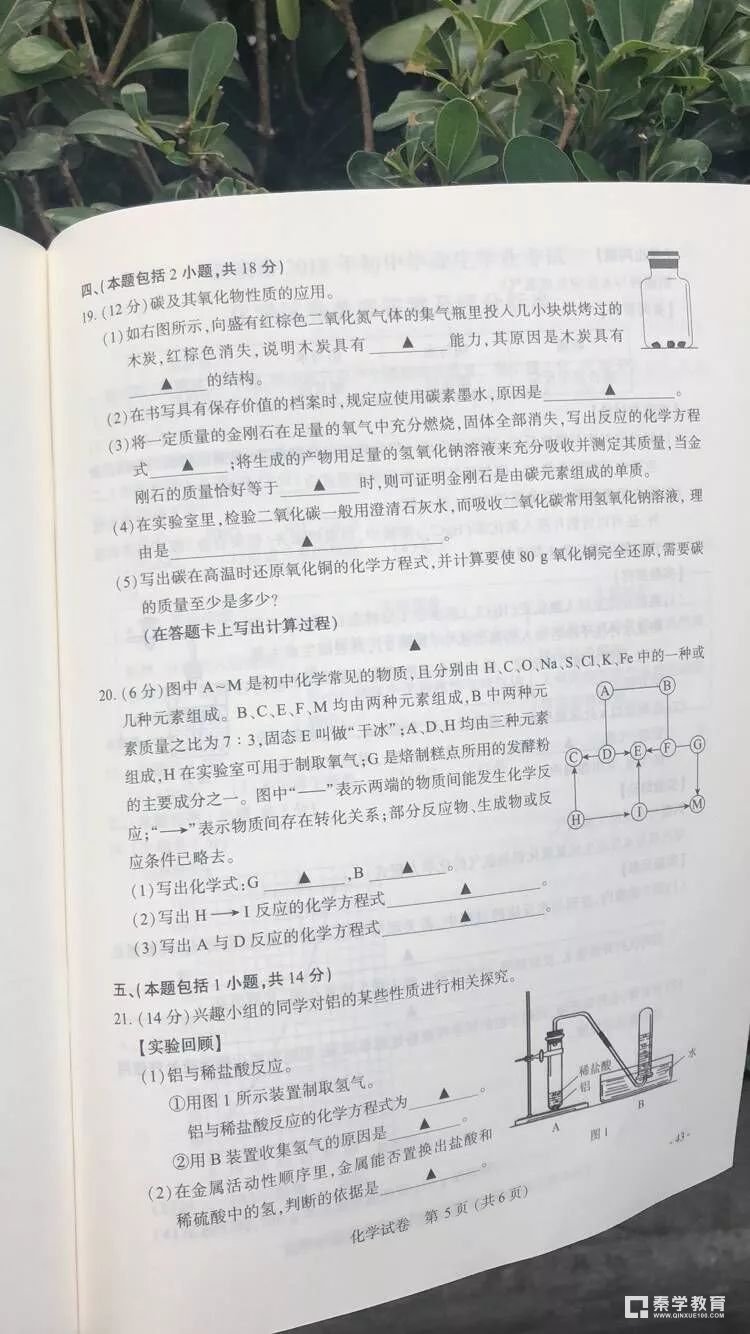 四、(本题包括 2 小题,共 18 分)
19. (12 分)碳及其氧化物性质的应用。
(1)如右图所示,向盛有红棕色二氧化氮气体的集气瓶里投入几小块烘烤过的
木炭,红棕色消失,说明木炭具有 ▲ 能力,其原因是木炭具有
▲ 的结构。
(2)在书写具有保存价值的档案时,规定应使用碳素墨水,原因是 ▲ 。
(3)将一定质量的金刚石在足量的氧气中充分燃烧,固体全部消失,写出反应的化学方程
式 ▲ ;将生成的产物用足量的氢氧化钠溶液来充分吸收并测定其质量,当金
刚石的质量恰好等于 ▲ 时,则可证明金刚石是由碳元素组成的单质。
(4)在实验室里,检验二氧化碳一般用澄清石灰水,而吸收二氧化碳常用氢氧化钠溶液, 理
由是 ▲ 。
(5)写出碳在高温时还原氧化铜的化学方程式,并计算要使 80 g 氧化铜完全还原,需要碳
的质量至少是多少?
(在答题卡上写出计算过程)
▲
20. (6 分)图中 A~M 是初中化学常见的物质,且分别由 H、C、O、Na、S、Cl、K、Fe 中的一种或
几种元素组成。B、C、E、F、M 均由两种元素组成,B 中两种元
素质量之比为 7∶3,固态 E 叫做“干冰”;A、D、H 均由三种元素
组成,H 在实验室可用于制取氧气;G 是焙制糕点所用的发酵粉
的主要成分之一。图中“——”表示两端的物质间能发生化学反
应;“—→”表示物质间存在转化关系;部分反应物、生成物或反
应条件已略去。
A B
C D E F G
H I M
(1)写出化学式:G ▲ ,B ▲ 。
(2)写出 H—→I 反应的化学方程式 ▲ 。
(3)写出 A 与 D 反应的化学方程式 ▲ 。
五、(本题包括 1 小题,共 14 分)
21. (14 分)兴趣小组的同学对铝的某些性质进行相关探究。
【实验回顾】
(1)铝与稀盐酸反应。
①用图 1 所示装置制取氢气。
铝与稀盐酸反应的化学方程式为 ▲ 。
②用 B 装置收集氢气的原因是 ▲ 。
(2)在金属活动性顺序里,金属能否置换出盐酸和
稀硫酸中的氢,判断的依据是 ▲ 。
稀盐酸
铝
水
A B
图 1
·43·
化学试卷 第 5 页 (共 6 页)
秦学教育
WWW.QINXUE100.COM